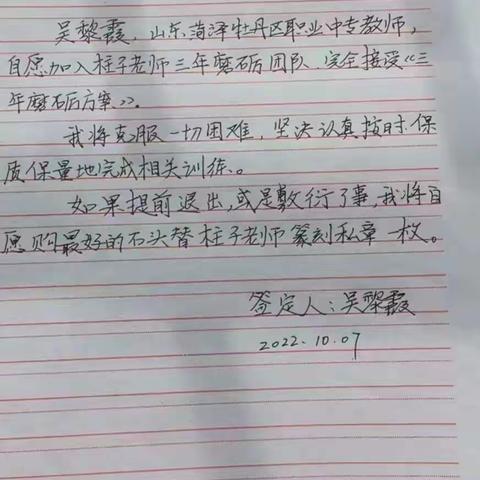 吴黎霞,山东菏泽牡丹区职业中专教师,
自愿加入柱子老师三年磨砺团队,完全接受《三
年磨砺方案》。
我将克服一切困难,坚决认真按时保
质保量地完成相关训练。
如果提前退出,或是敷衍了事,我将自
愿购最好的石头替柱子老师篆刻私章一枚。
签定人:吴黎霞
2022.10.07